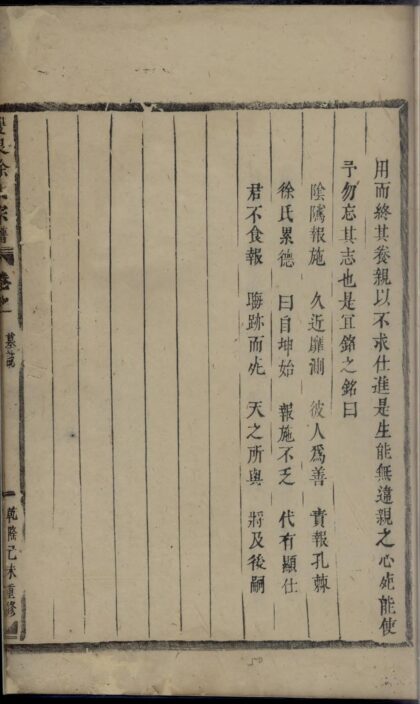 用而終其養親以不求仕進是生能無違親之心死能使
予勿忘其志也是宜銘之銘曰
陰隲報施　久近靡測　彼人爲善　責報孔棘
徐氏累德　曰自坤始　報施不乏　代有顯仕
君不食報　晦跡而死　天之所與　將及後嗣
徐氏宗譜
卷之一
墓誌
一
乾隆己未重修